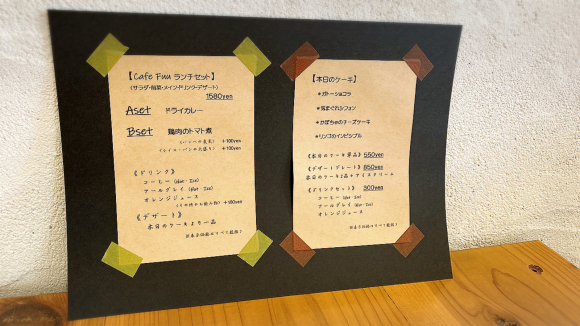 【Cafe Fuu ランチセット】
(サラダ・前菜・メイン・ドリンク・デザート)
1580yen
Aset ドライカレー
Bset 鶏肉のトマト煮
+100yen
+100yen
《ドリンク》
コーヒー (Hot・Ice)
アールグレイ (Hot・Ice)
オレンジジュース
《デザート》
本日のケーキより一品
【本日のケーキ】
★ガトーショコラ
★気まぐれシフォン
★かぼちゃのチーズケーキ
★リンゴのインビジブル
《本日のケーキ単品》 550yen
《デザートプレート》 850yen
本日のケーキ2品+アイスクリーム
《ドリンクセット》 300yen
コーヒー (Hot・Ice)
アールグレイ (Hot・Ice)
オレンジジュース